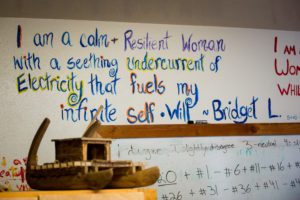 I am a calm + Resilient Woman
with a seething undercurrent of
Electricity that fuels my
infinite self • Will ~ Bridget L.
I am
Wom
WHIL
disagree, 2 slightly disagree 3 neutral 4
20 + #1 - #6 + #11 - #16 +
#26 + #31 - #36 + #41 -